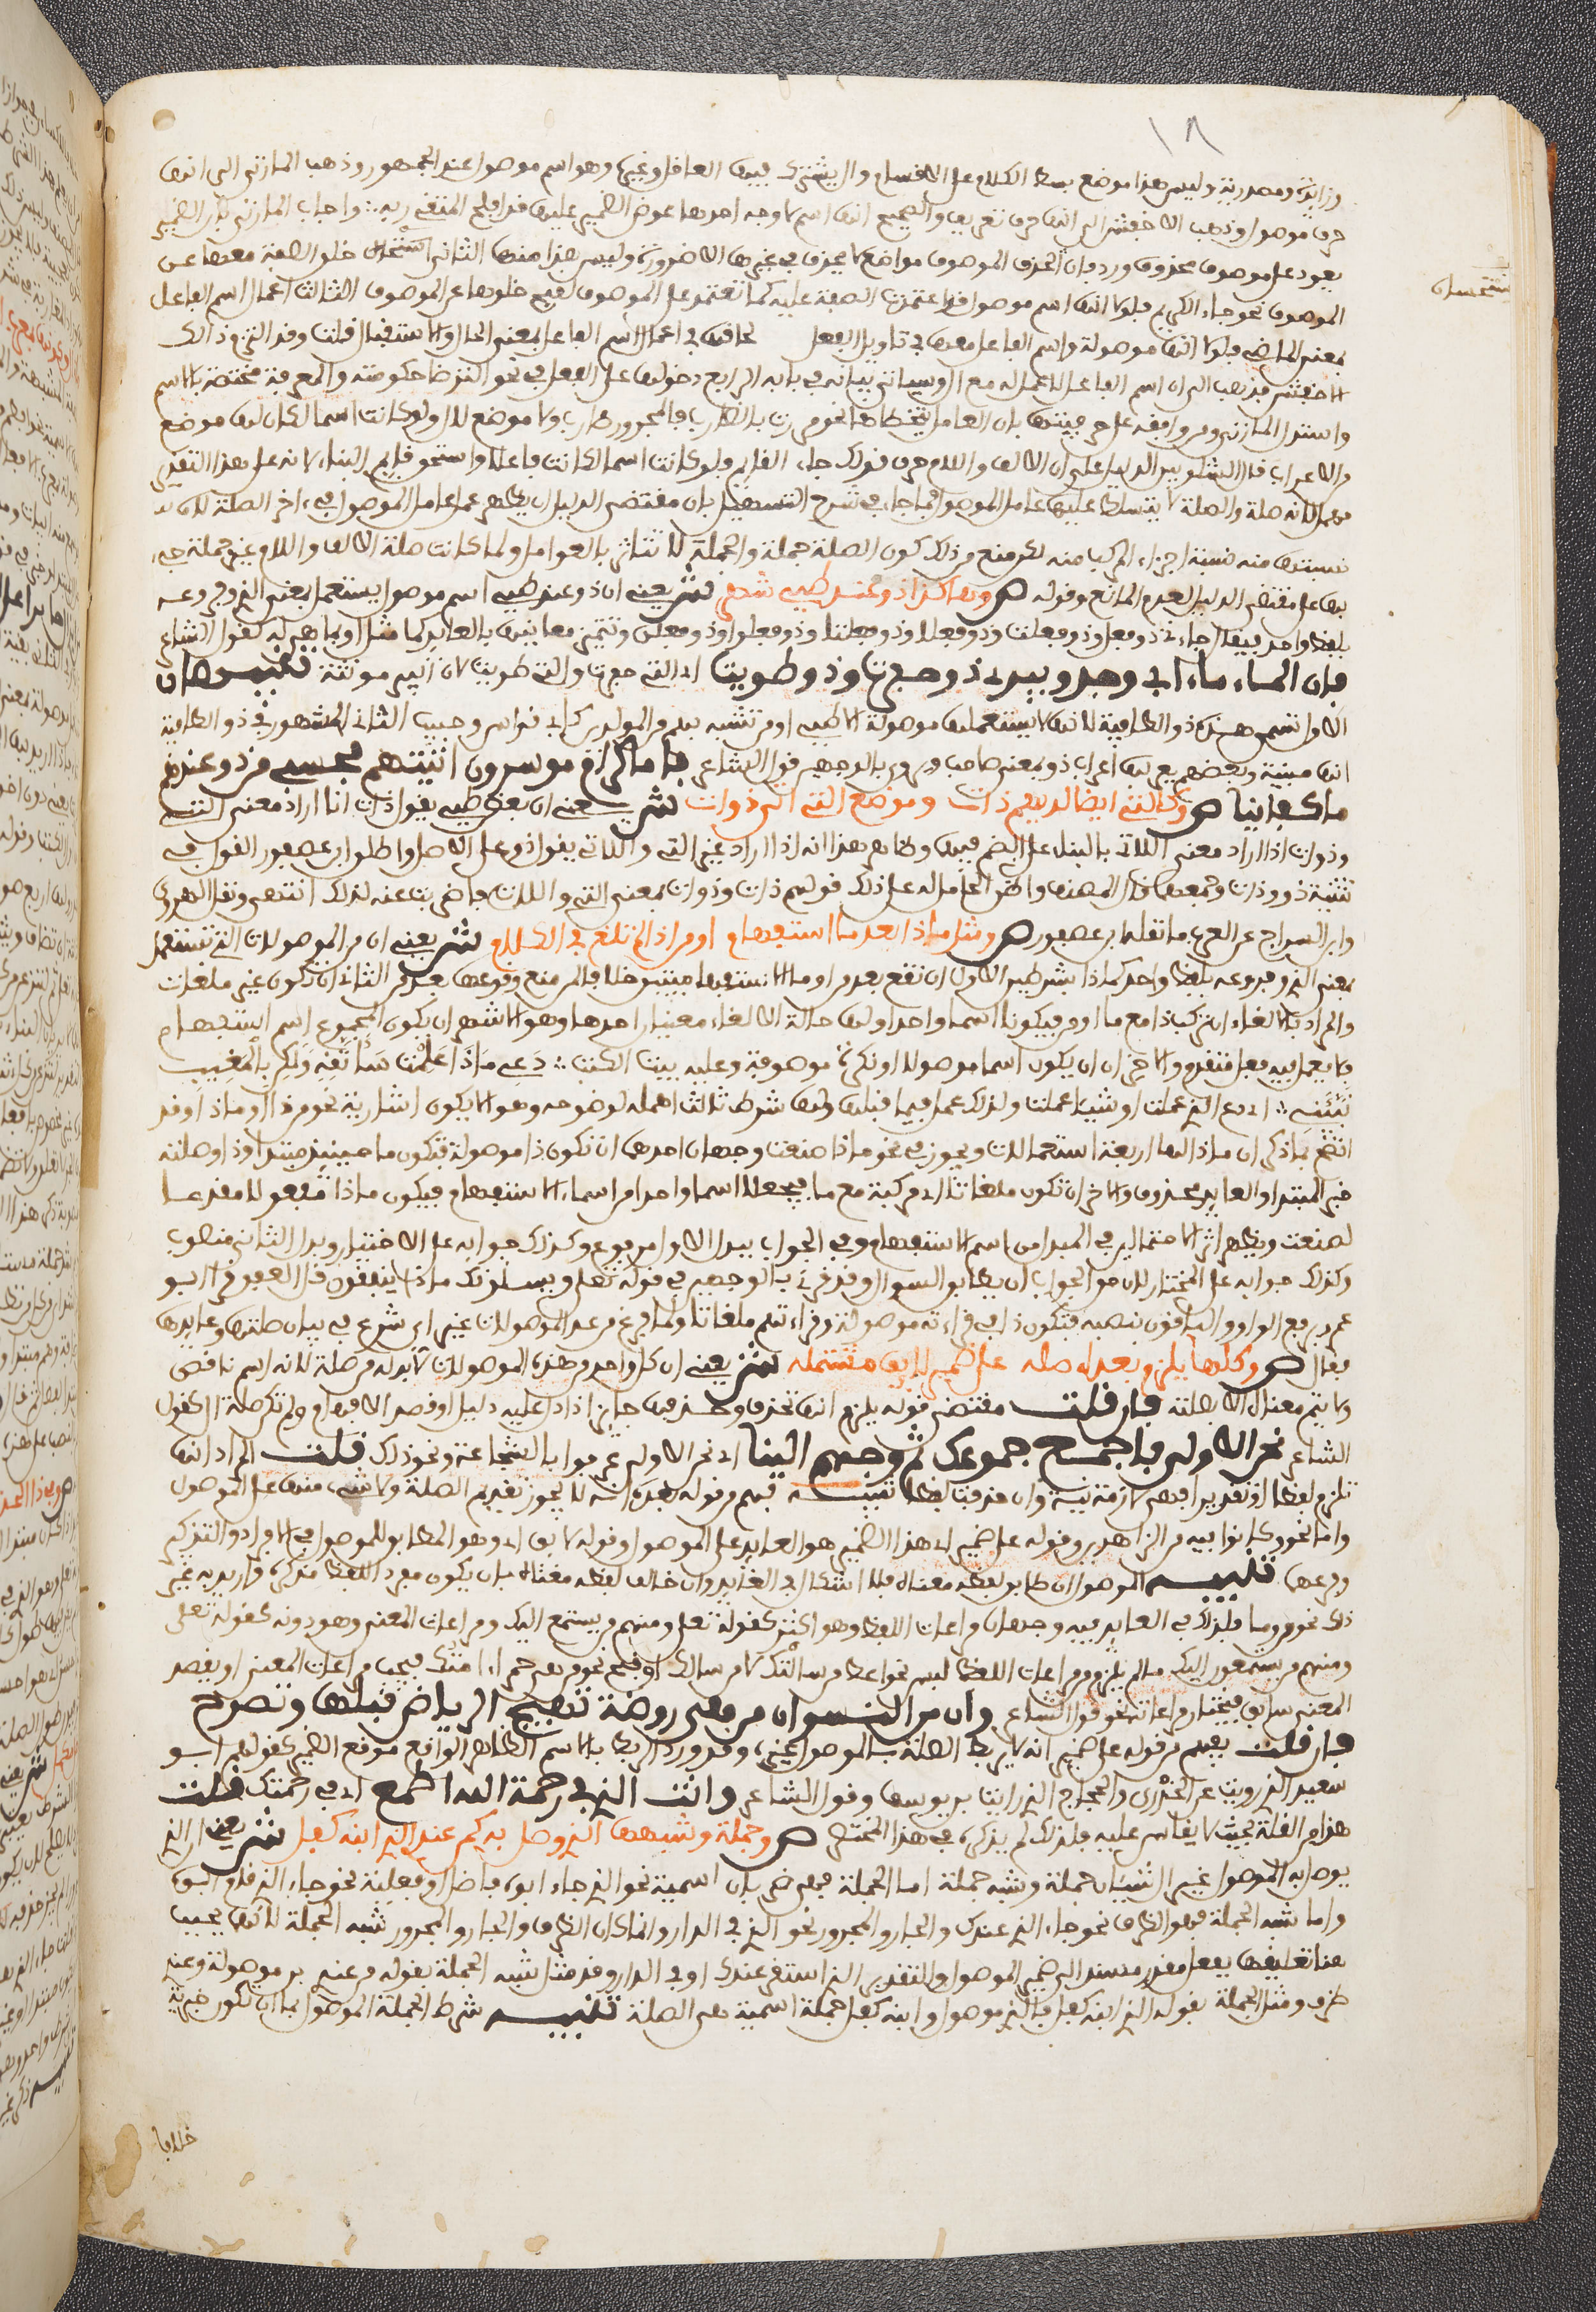 ١٨
وزايدة ومصدرية وليس هذا موضع بسط الكلام على الاقسام وال يشترك فيها العاقل وغيره وهو اسم موصول عند الجمهور وذهب المازني الى انها
حرف موصول وذهب الاخفش الى انها حرف تعريف والصحيح انها اسم لاوجه احدها عود الضمير عليها قد افلح المتقي ربه واجاب المازني بان الضمير
يعود على موصوف محذوف ورد بان لحذف الموصوف مواضع لا يحذف في غيرها الا ضرورة وليس هذا منها الثاني استحسان خلو الصفة معها عن
استحسان
الموصوف نحو جاء الكريم فلولا انها اسم موصول قد اعتمدت الصفة عليه كما تعتمد على الموصوف لقبح خلوها عن الموصوف الثالث اعمال اسم الفاعل
بمعنى الماضي فلولا انها موصولة واسم الفاعل معها في تاويل الفعل لكان في اعمال اسم الفاعل بمعنى الحال والاستقبال فلت وقد التزم ذلك
الاخفش فذهب الى ان اسم الفاعل لا عمل له مع ال وسياتي بيانه في بابه الرابع دخولها على الفعل في نحو الترضى حكومته والمعرفة مختصة بالاسم
واستدل المازني ومن وافقه على حرفيتها بان العامل يتخطاها نحو مررت بالضارب فالمجرور ضارب ولا موضع لال ولو كانت اسما لكان لها موضع
من الاعراب قال الشلوبين الدليل على ان الالف واللام حرف قولك جاء القايم فلو كانت اسما لكانت فاعلا واستحق قايم البناء لانه على هذا التقدير
مهمل لانه صلة والصلة لا يتسلط عليها عامل الموصول واجاب في شرح التسهيل بان مقتضى الدليل ان يظهر عمل عامل الموصول في اخر الصلة لان
نسبتها منه نسبة اجزاء المركب منه لكن منع من ذلك كون الصلة جملة والجملة لا تتاثر بالعوامل ولما كانت صلة الالف واللام غير جملة جيء
بها على مقتضى الدليل لعدم المانع وقوله ص وهاكذا ذو عند طيئ شهر ش يعني ان ذو عند طيئ اسم موصول يستعمل بمعنى الذي وفروعه
بلفظ واحد فيقال جاءني ذو فعل وذو فعلت وذو فعلا وذو فعلتا وذو فعلوا وذو فعلن وتتميز معانيها بالعايد كما مثل او بما هي له كقول الشاعر
فان الماء ماء ابي وجدي وبيري ذو حفرت وذو طويت اي التي حفرت والتي طويت لان البير مؤنثة تنبيهان
الاول تسمى هذه ذو الطائية لانها لا يستعملها موصولة الا طيئ او من تشبه بهم من المولدين كابي نواس وحبيب الثاني المشهور في ذو الطائية
انها مبنية وبعضهم يعربها اعراب ذو بمعنى صاحب وروي بالوجهين قول الشاعر فاما كرام موسرون اتيتهم فحسبي من ذو عندهم
ما كفانيا ص وكالتي ايضا لديهم ذات وموضع اللاتي اتى ذوات ش يعني ان بعض طيئ يقول ذات اذا اراد معنى التي
وذوات اذا اراد معنى اللاتي بالبناء على الضم فيهما وظاهر هذا انه اذا اراد غير التي واللاتي يقول ذو على الاصل واطلق ابن عصفور القول في
تثنية ذو وذات وجمعها قال المصنف واظن الحامل له على ذلك قولهم ذات وذوات بمعنى التي واللات فاضربت عنه لذلك انتهى ونقل الهروي
وابن السراج عن العرب ما نقله ابن عصفور ص ومثل ما ذا بعد ما استفهام او من اذا لم تلغ في الكلام ش يعني ان من الموصولات التي تستعمل
بمعنى الذي وفروعه بلفظ واحد كما ذا بشرطين الاول ان تقع بعد من او ما الاستفهاميتين خلافا لمن منع وقوعها بعد من الثاني ان تكون غير ملغات
والمراد بالالغاء ان تركب ذا مع ما او من فيكونا اسما واحدا ولها حالة الالغاء معنيان احدهما وهو الاشهر ان يكون المجموع اسم استفهام
فلا يعمل فيه فعل متقدم والاخر ان يكون اسما موصولا او نكرة موصوفة وعليه بيت الكتاب دعي ما ذا علمت ساتقيه ولكن بالمغيب
نبئيني اي دعي الذي علمت او شيئا علمت ولذلك عمل فيما قبلها ولها شرط ثالث اهمله لوضوحه وهو الا يكون اشارية نحو من ذا او ما ذا وقد
اتضح بما ذكر ان ماذا لها اربعة استعمالات ويجوز في نحو ماذا صنعت وجهان احدهما ان تكون ذا موصولة فتكون ما حينئذ مبتدا وذا وصلته
خبر المبتدا والعايد محذوف والاخر ان تكون ملغاتا اي مركبة مع ما فيجعلا اسما واحدا من اسماء الاستفهام فيكون ماذا مفعولا مقدما
لصنعت ويظهر اثر الاحتمالين في البدل من اسم الاستفهام وفي الجواب فبدل الاول مرفوع وكذلك جوابه على الاختيار وبدل الثاني منصوب
وكذلك جوابه على المختار لان حق الجواب ان يطابق السوال وقد قرئ بالوجهين في قوله تعالى ويسلونك ماذا ينفقون قل العفو قرا ابو
عمرو برفع الواو والباقون بنصبه فتكون ذا في قراءته موصولة وقراءتهم ملغاتا ولما فرغ من عد الموصولات غير اي شرع في بيان صلتها وعايدها
فقال ص وكلها يلزم بعده صله على ضمير لايق مشتمله ش يعني ان كل واحد من هذه الموصولات لا بد له من صلة لانه اسم ناقص
ولا يتم معناه الا بصلته فان قلت مقتضى قوله يلزم انها تحذف وحذفها جايز اذا دل عليه دليل او قصد الابهام ولم تكن صلة ال كقول
الشاعر نحن الالى فاجمع جموعك ثم وجههم الينا اي نحن الالى عرفوا بالشجاعة ونحو ذلك قلت المراد انها
تلزم لفظا او تقديرا فهي لازمة نية وان حذفت لفظا تنبيه فهم من قوله بعده انه لا يجوز تقديم الصلة ولا شيء منها على الموصول
واما نحو وكانوا فيه من الزاهدين وقوله على ضمير اي هذا الضمير هو العايد على الموصول وقوله لايق اي وهو المطابق للموصول في الافراد والتذكير
وفرعها تنبيه الموصول ان طابق لفظه معناه فلا اشكال في العايد وان خالف لفظه معناه بان يكون مفرد اللفظ مذكرا واريد به غير
ذلك نحو من وما فلذلك في العايد فيه وجهان مراعات اللفظ وهو اكثر كقوله تعالى ومنهم من يستمع اليك ومراعات المعنى وهو دونه كقوله تعالى
ومنهم من يستمعون اليك ما لم يلزم من مراعات اللفظ لبس نحو اعط من سالتك لا من سالك او قبح نحو من هي حمراء امتك فيجب مراعات المعنى او يعضد
المعنى سابق فيختار مراعاته نحو قول الشاعر وان من النسوان من هي روضة تهيج الرياض قبلها وتصوح
فان قلت يفهم من قوله على ضمير انه لا يربط الصلة بالموصول غيره وقد ورد الربط بالاسم الظاهر الواقع موقع الضمير كقولهم ابو
سعيد الذي رويت عن الخدري والحجاج الذي رايت بن يوسف وقول الشاعر وانت الذي في رحمة الله اطمع اي في رحمتك قلت
هذا من القلة بحيث لا يقاس عليه فلذلك لم يذكره في هذا المختصر ص وجملة وشبهها الذي وصل به كمن عندي الذي ابنه كفل ش يعني ان الذي
يوصل به الموصول غير ال شيئان جملة وشبه جملة اما الجملة فهي ضربان اسمية نحو الذي جاء ابوه فاضل وفعلية نحو جاء الذي قام ابوه
واما شبه الجملة فهو الظرف نحو جاء الذي عندك والجار والمجرور نحو الذي في الدار وانما كان الظرف والجار والمجرور شبه الجملة لانها يجب
هنا تعليقها بفعل مقدر مسند الى ضمير الموصول والتقدير الذي استقر عندك او في الدار وقد مثل شبه الجملة بقوله من عندي بمن موصولة وعند
ظرف ومثل الجملة بقوله الذي ابنه كفل فالذي موصول وابنه كفل جملة اسمية هي الصلة تنبيه شرط الجملة الموصول بها ان تكون خبرية
خلافا